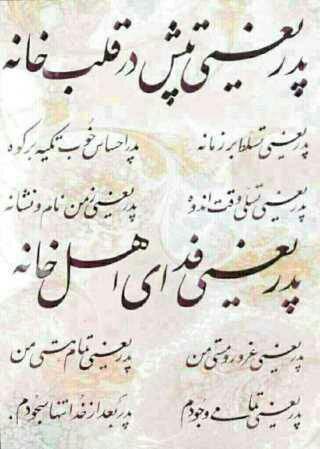 پدر یعنی تپش در قلب خانه
پدر یعنی تسلط بر زمانه
پدر احساس خوب تکیه بر کوه
پدر یعنی تسلی وقت اندوه
پدر یعنی ز من نام و نشانه
پدر یعنی فدای اهل خانه
پدر یعنی غرور و مستی من
پدر یعنی تمام هستی من
پدر یعنی تمامی وجودم
پدر بعد از خدا تنها سجودم.